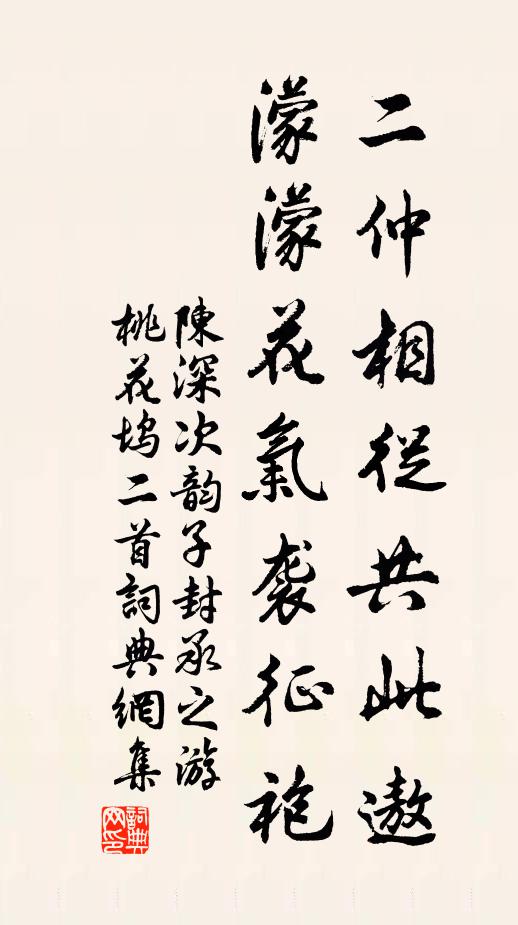 二仲相從共此遨
濛濛花氣袭征袍
陳深次韵子封承之游
桃花坞二首詞典網集
詞典网印